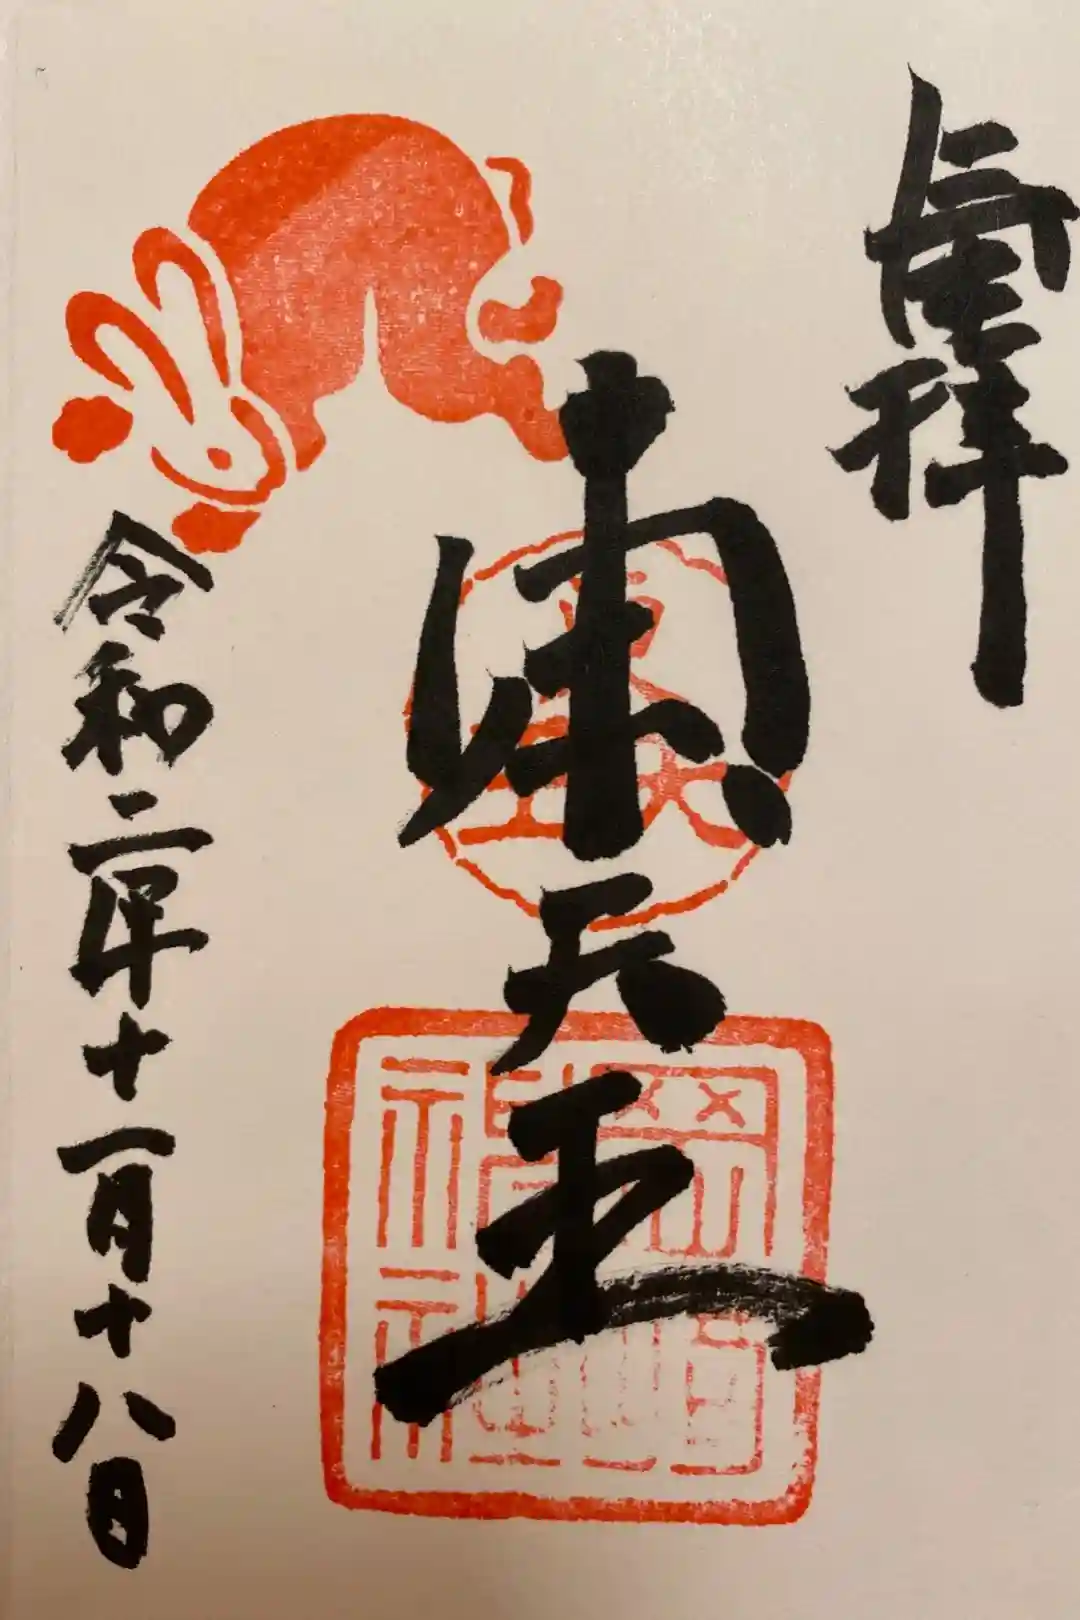 拝
東天王
令和二年十一月十八日